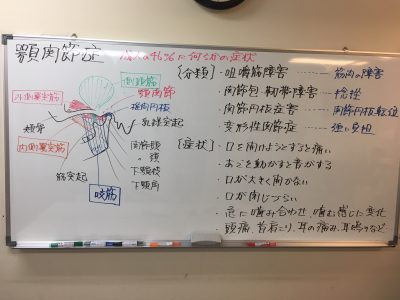 顎関節症
成人の46%に何らかの症状
側頭筋
顎関節
外側翼突筋
関節円板
乳様突起
頬骨
内側翼突筋
関節頭
〃 頚
下顎枝
下顎角
筋突起
咬筋
【分類】・咀嚼筋障害 ……… 筋肉の障害
・関節包・靭帯障害 …… 捻挫
・関節円板症害 …… 関節円板転位
・変形性関節症 …… 強い負担
【症状】・口を開けようとすると痛い
・あごを動かすと音がする
・口が大きく開かない
・口が閉じづらい
・急に噛み合わせ、噛む感じに変化
・頭痛、首肩こり、耳の痛み、耳鳴りなど